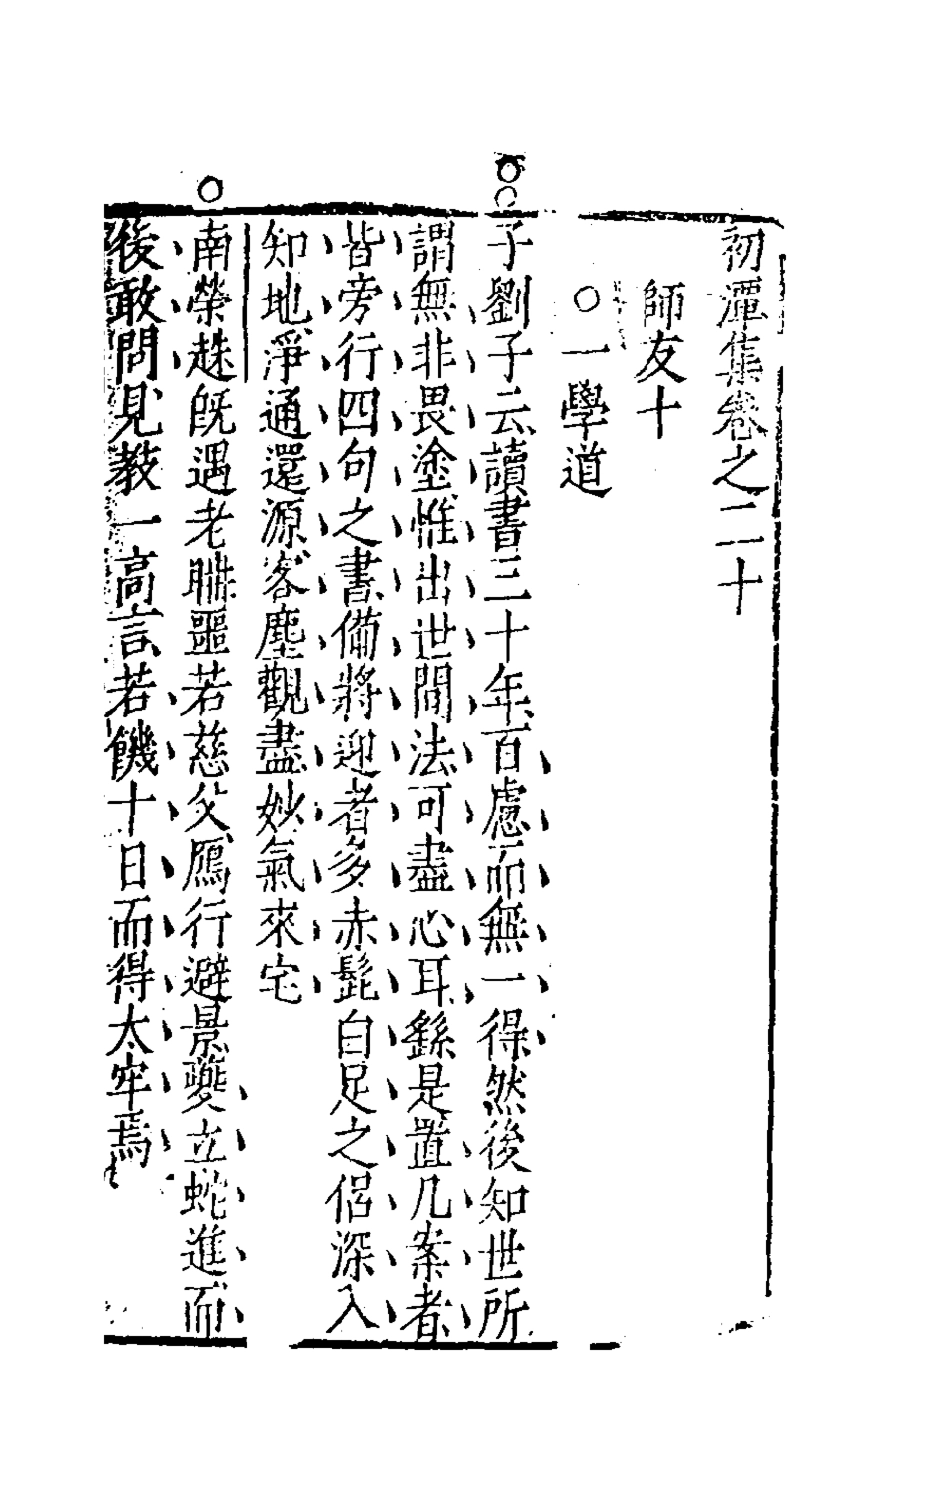 初潭集卷之二十
師友十
○一學道
子劉子云讀書三十年百慮而無一得然後知世所
謂無非畏塗惟出世間法可盡心耳繇是置几案者
皆旁行四句之書備將迎者多赤髭白足之侶深入
知地淨通還源客塵觀盡妙氣來宅
南榮趎既遇老聃噩若慈父鴈行避景夔立蛇進而
後敢問見教一高言若饑十日而得太牢焉